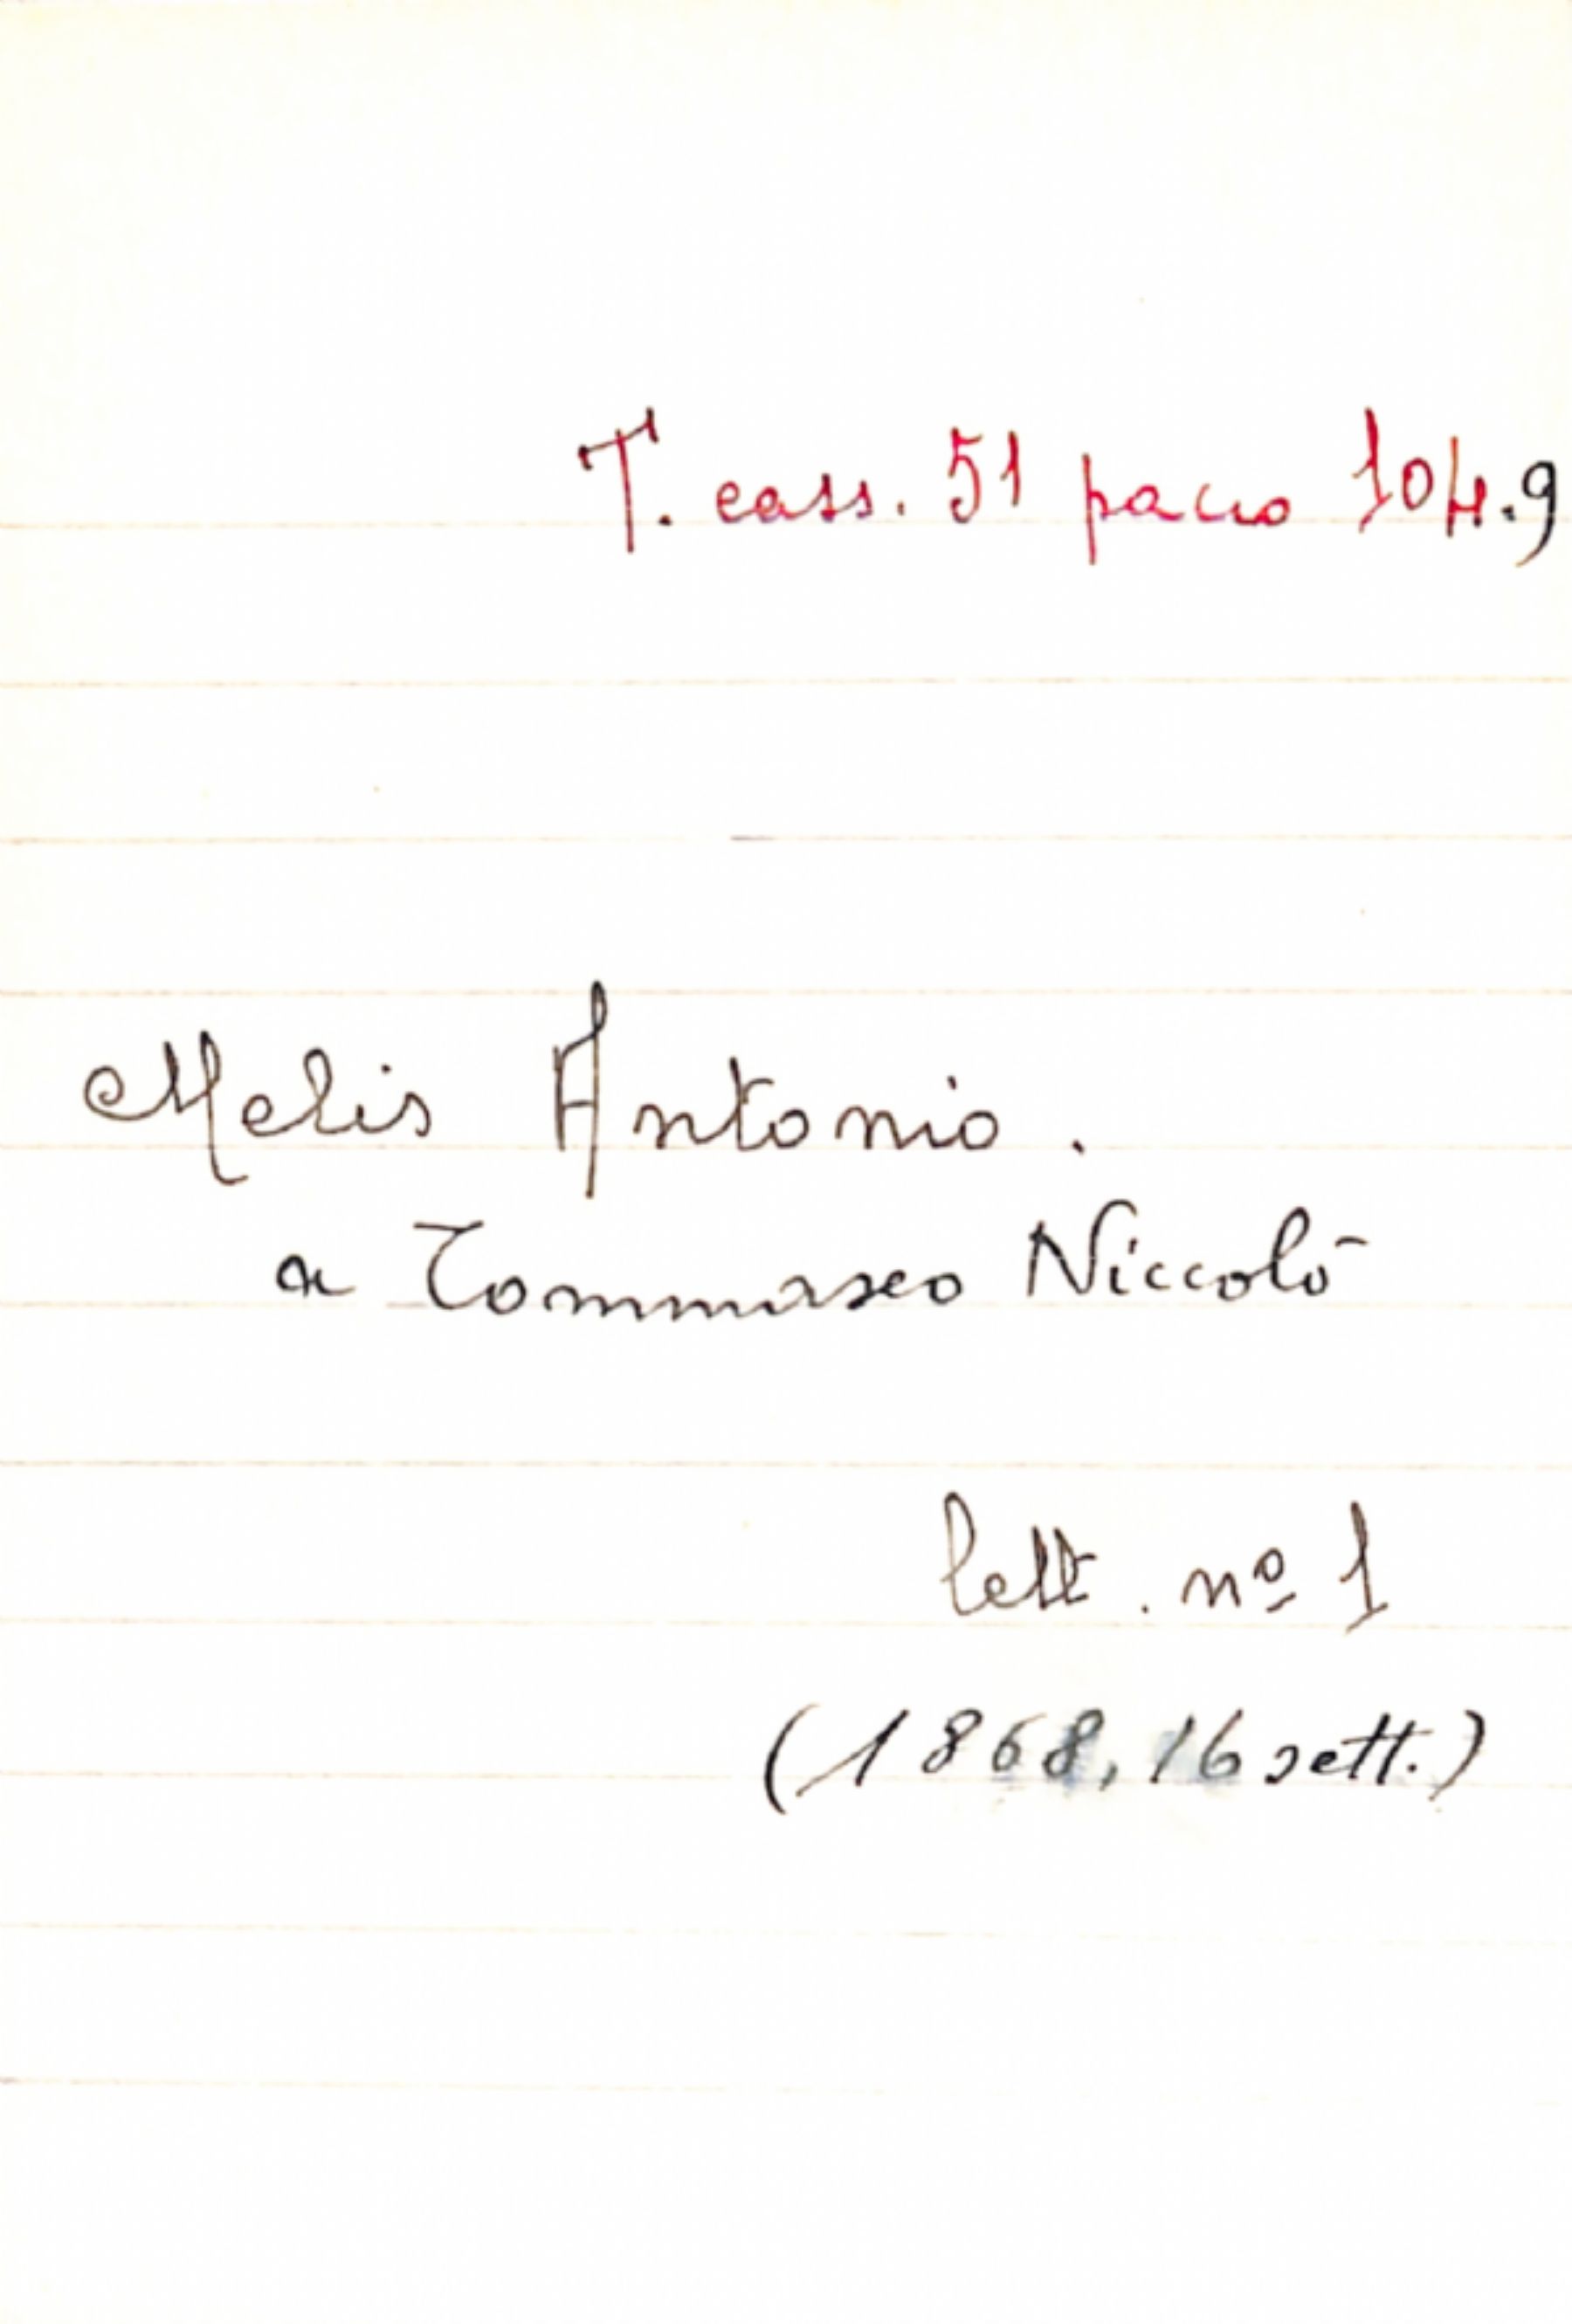 T. cass. 51 pacco 104.9
Melis Antonio.
a Tommaseo Niccolò
lett. nº 1
(1868, 16 sett.)